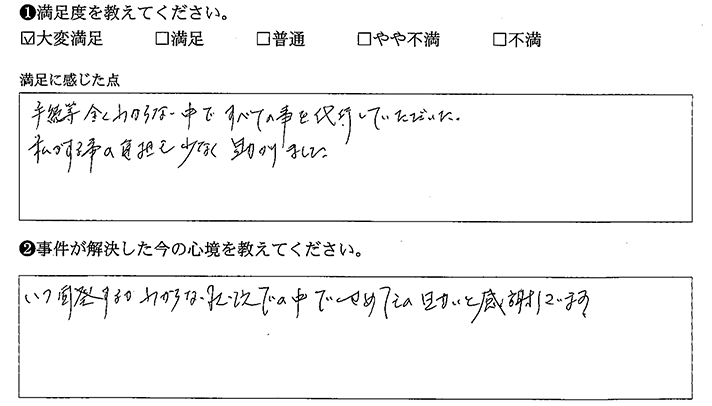 ❶満足度を教えてください。
☑大変満足 □満足 □普通 □やや不満 □不満
満足に感じた点
手続等全くわからない中ですべての事を代行していただいた。
私がする事の負担も少なく助かりました
❷事件が解決した今の心境を教えてください。
いつ再発するかわからない状況での中でせめてもの助かりと感謝しています